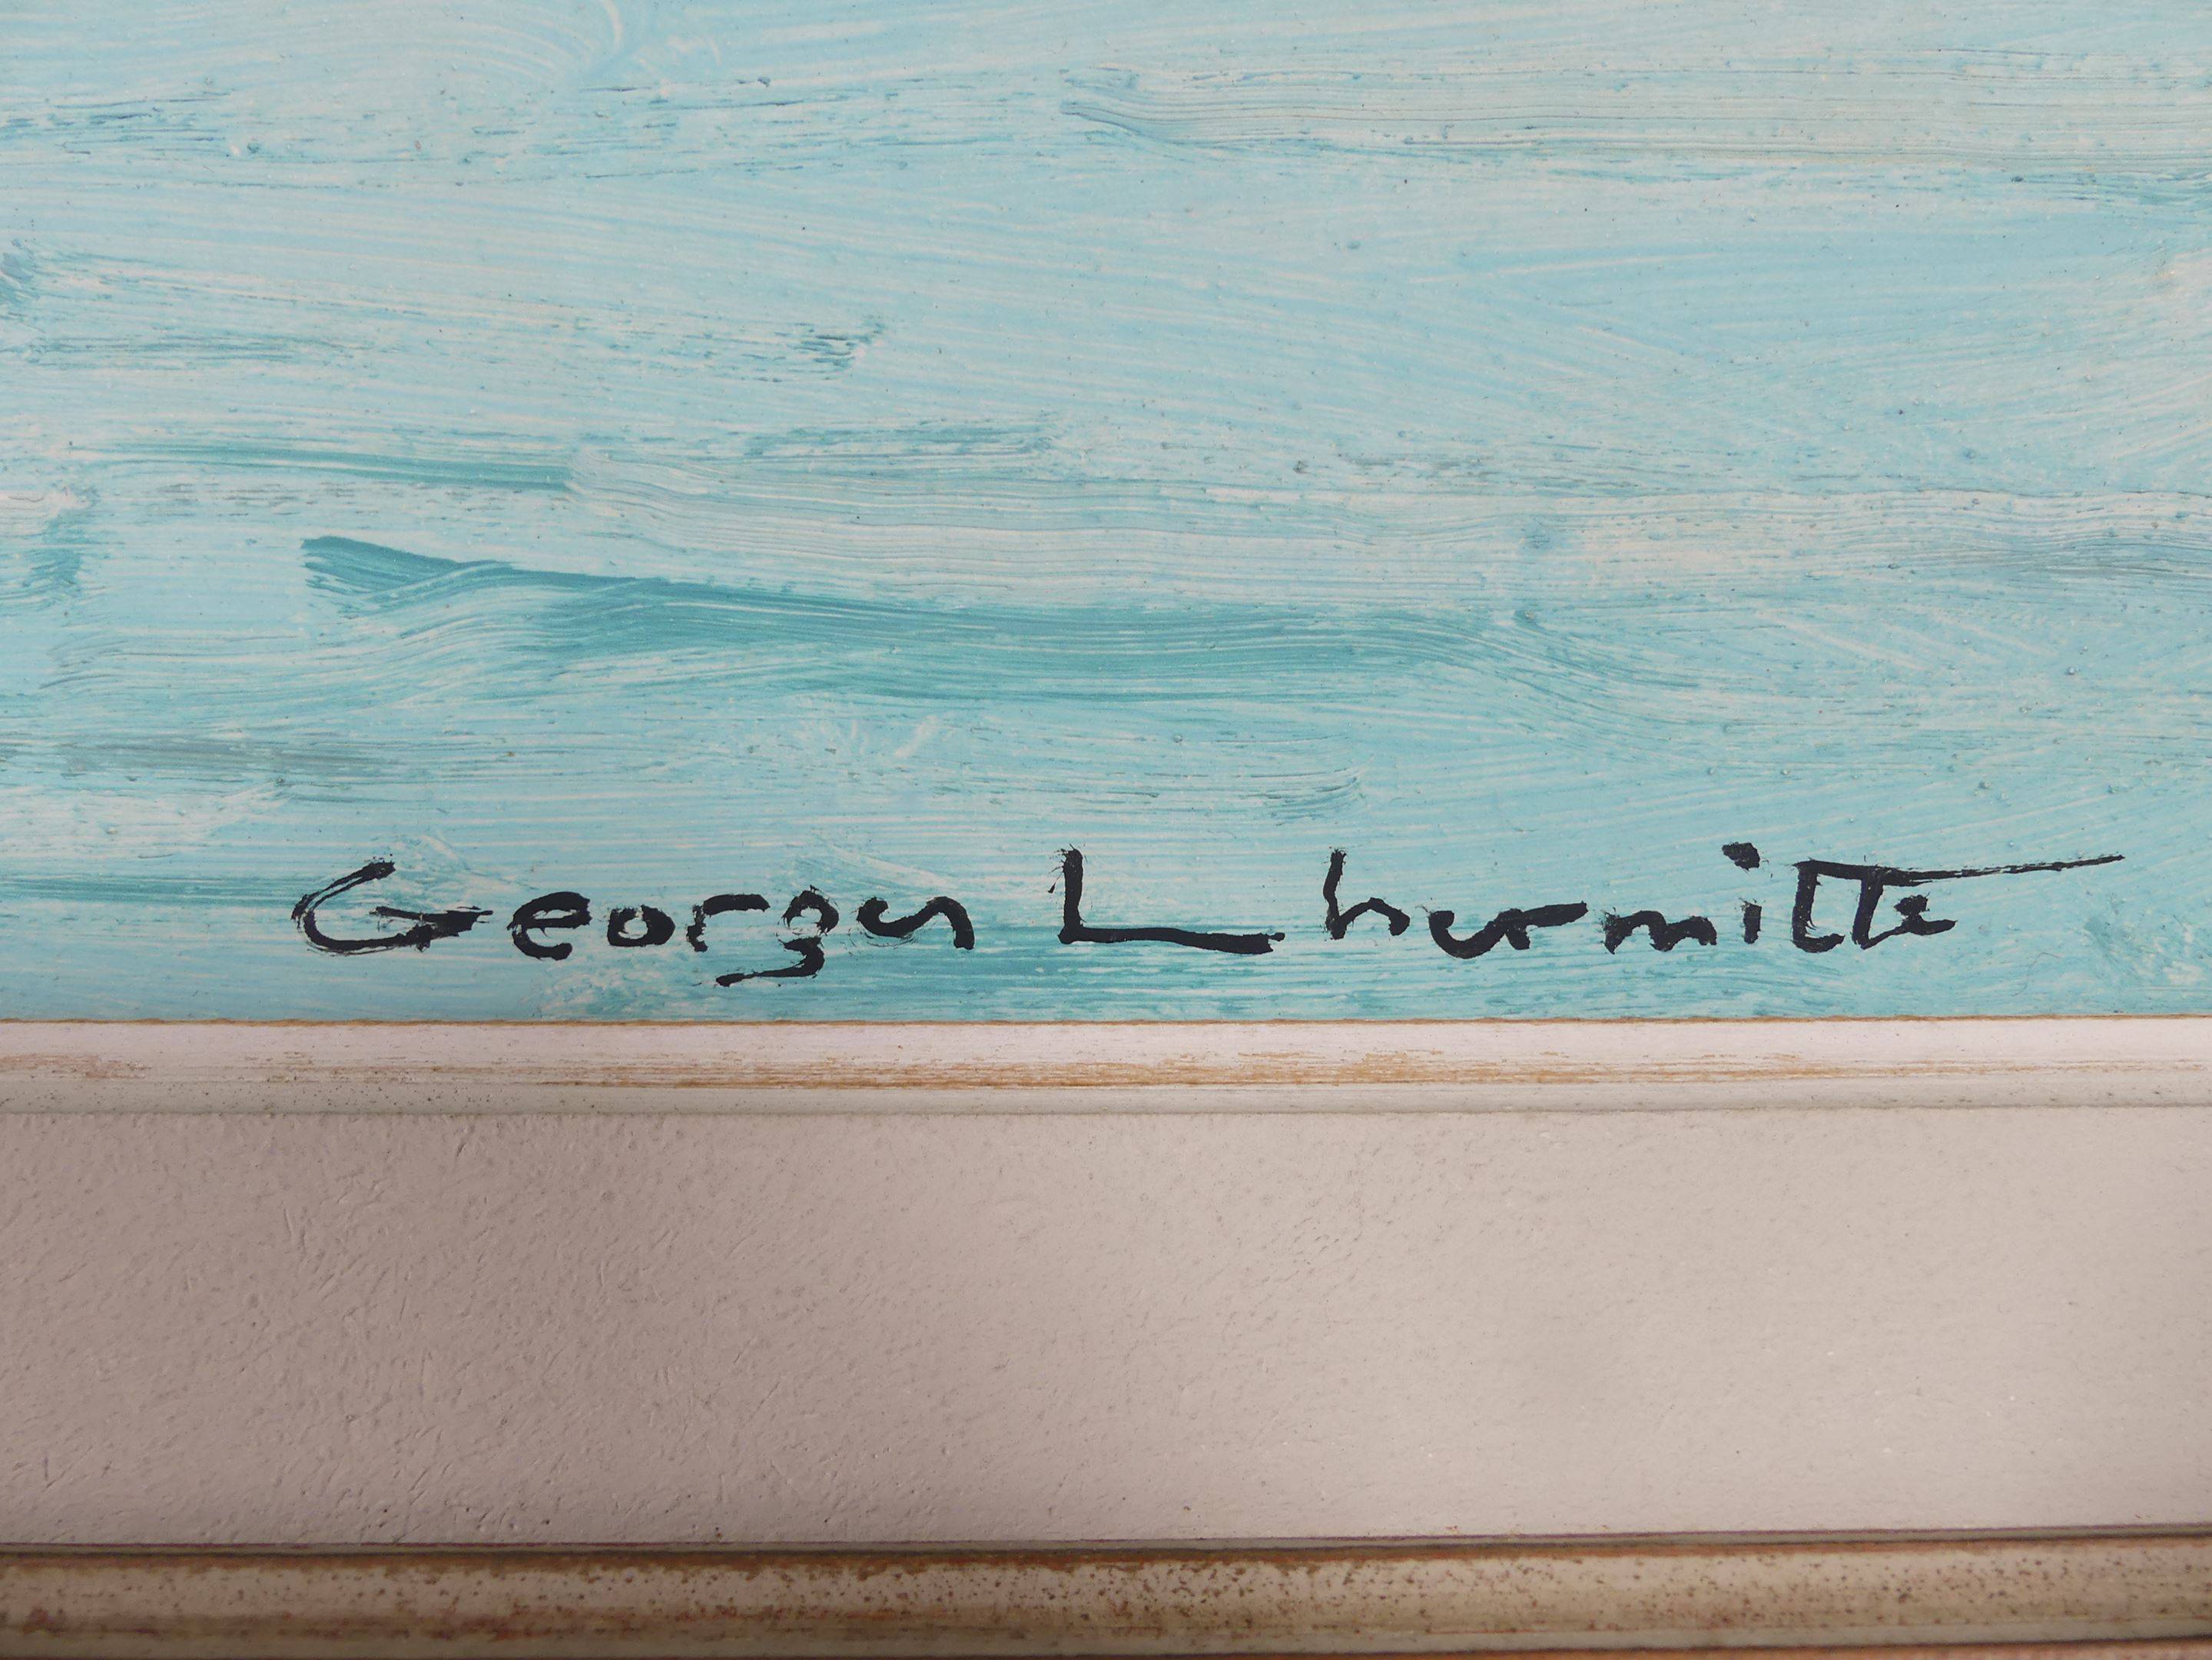 Georges Lhermitte